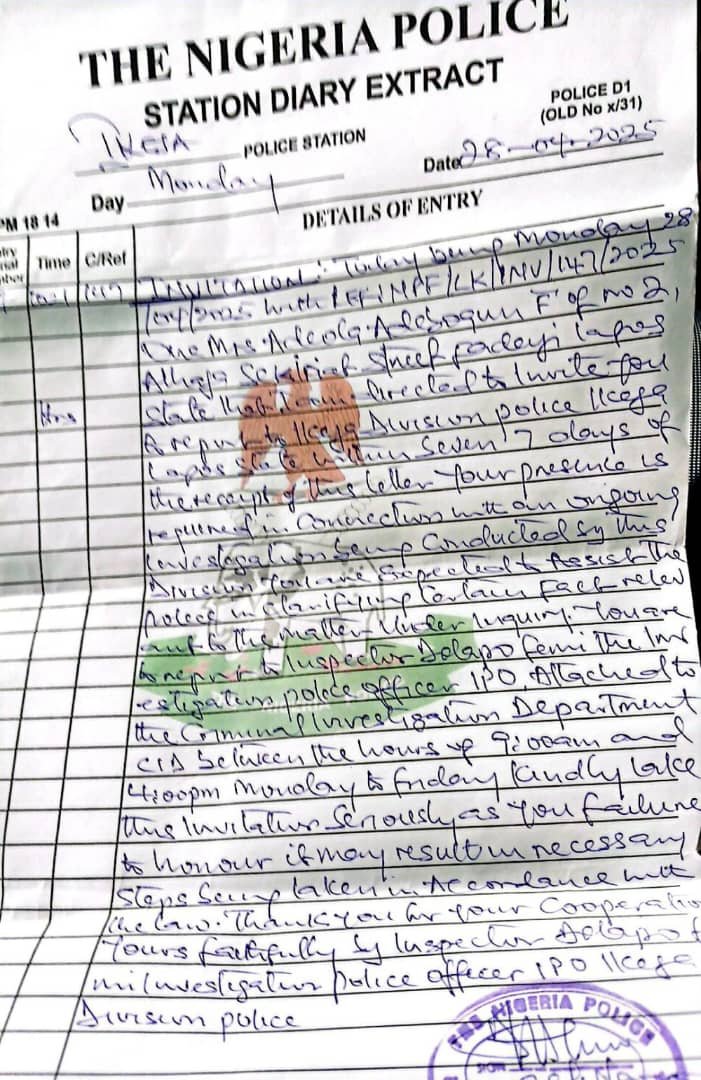 THE NIGERIA POLICE
STATION DIARY EXTRACT
POLICE D1
(OLD No x/31)
IKEJA POLICE STATION
Date 28-04-2025
Day Monday
PM 18 14
DETAILS OF ENTRY
Time C/Ref
INVITATION: Today being Monday 28
/04/2025 with /147/2025
One Mrs. Adeola Adebogun F of no 2,
Alhaja Street fadeyi lagos
State that directed to Invite you
Hrs
to Ikeja Division police Ikeja
Lagos State within Seven 7 days of
the receipt of this letter your presence is
required in Connection with an ongoing
Investigation being Conducted by this
Division You are expected to Assist the
Police in clarifying certain fact relev
ant to the matter Under Inquiry. You are
to report to Inspector Dolapo femi the Inv
estigation police officer IPO, Attached to
the Criminal Investigation Department
CID between the hours of 9:00am and
4:00pm Monday to friday kindly take
this Invitation Seriously as you failure
to honour it may result in necessary
Steps being taken in Accordance with
the law. Thank you for your Cooperatio
Yours faithfully by Inspector Dolapo f
mi Investigation police officer IPO Ikeja
Division police
THE NIGERIA POLICE